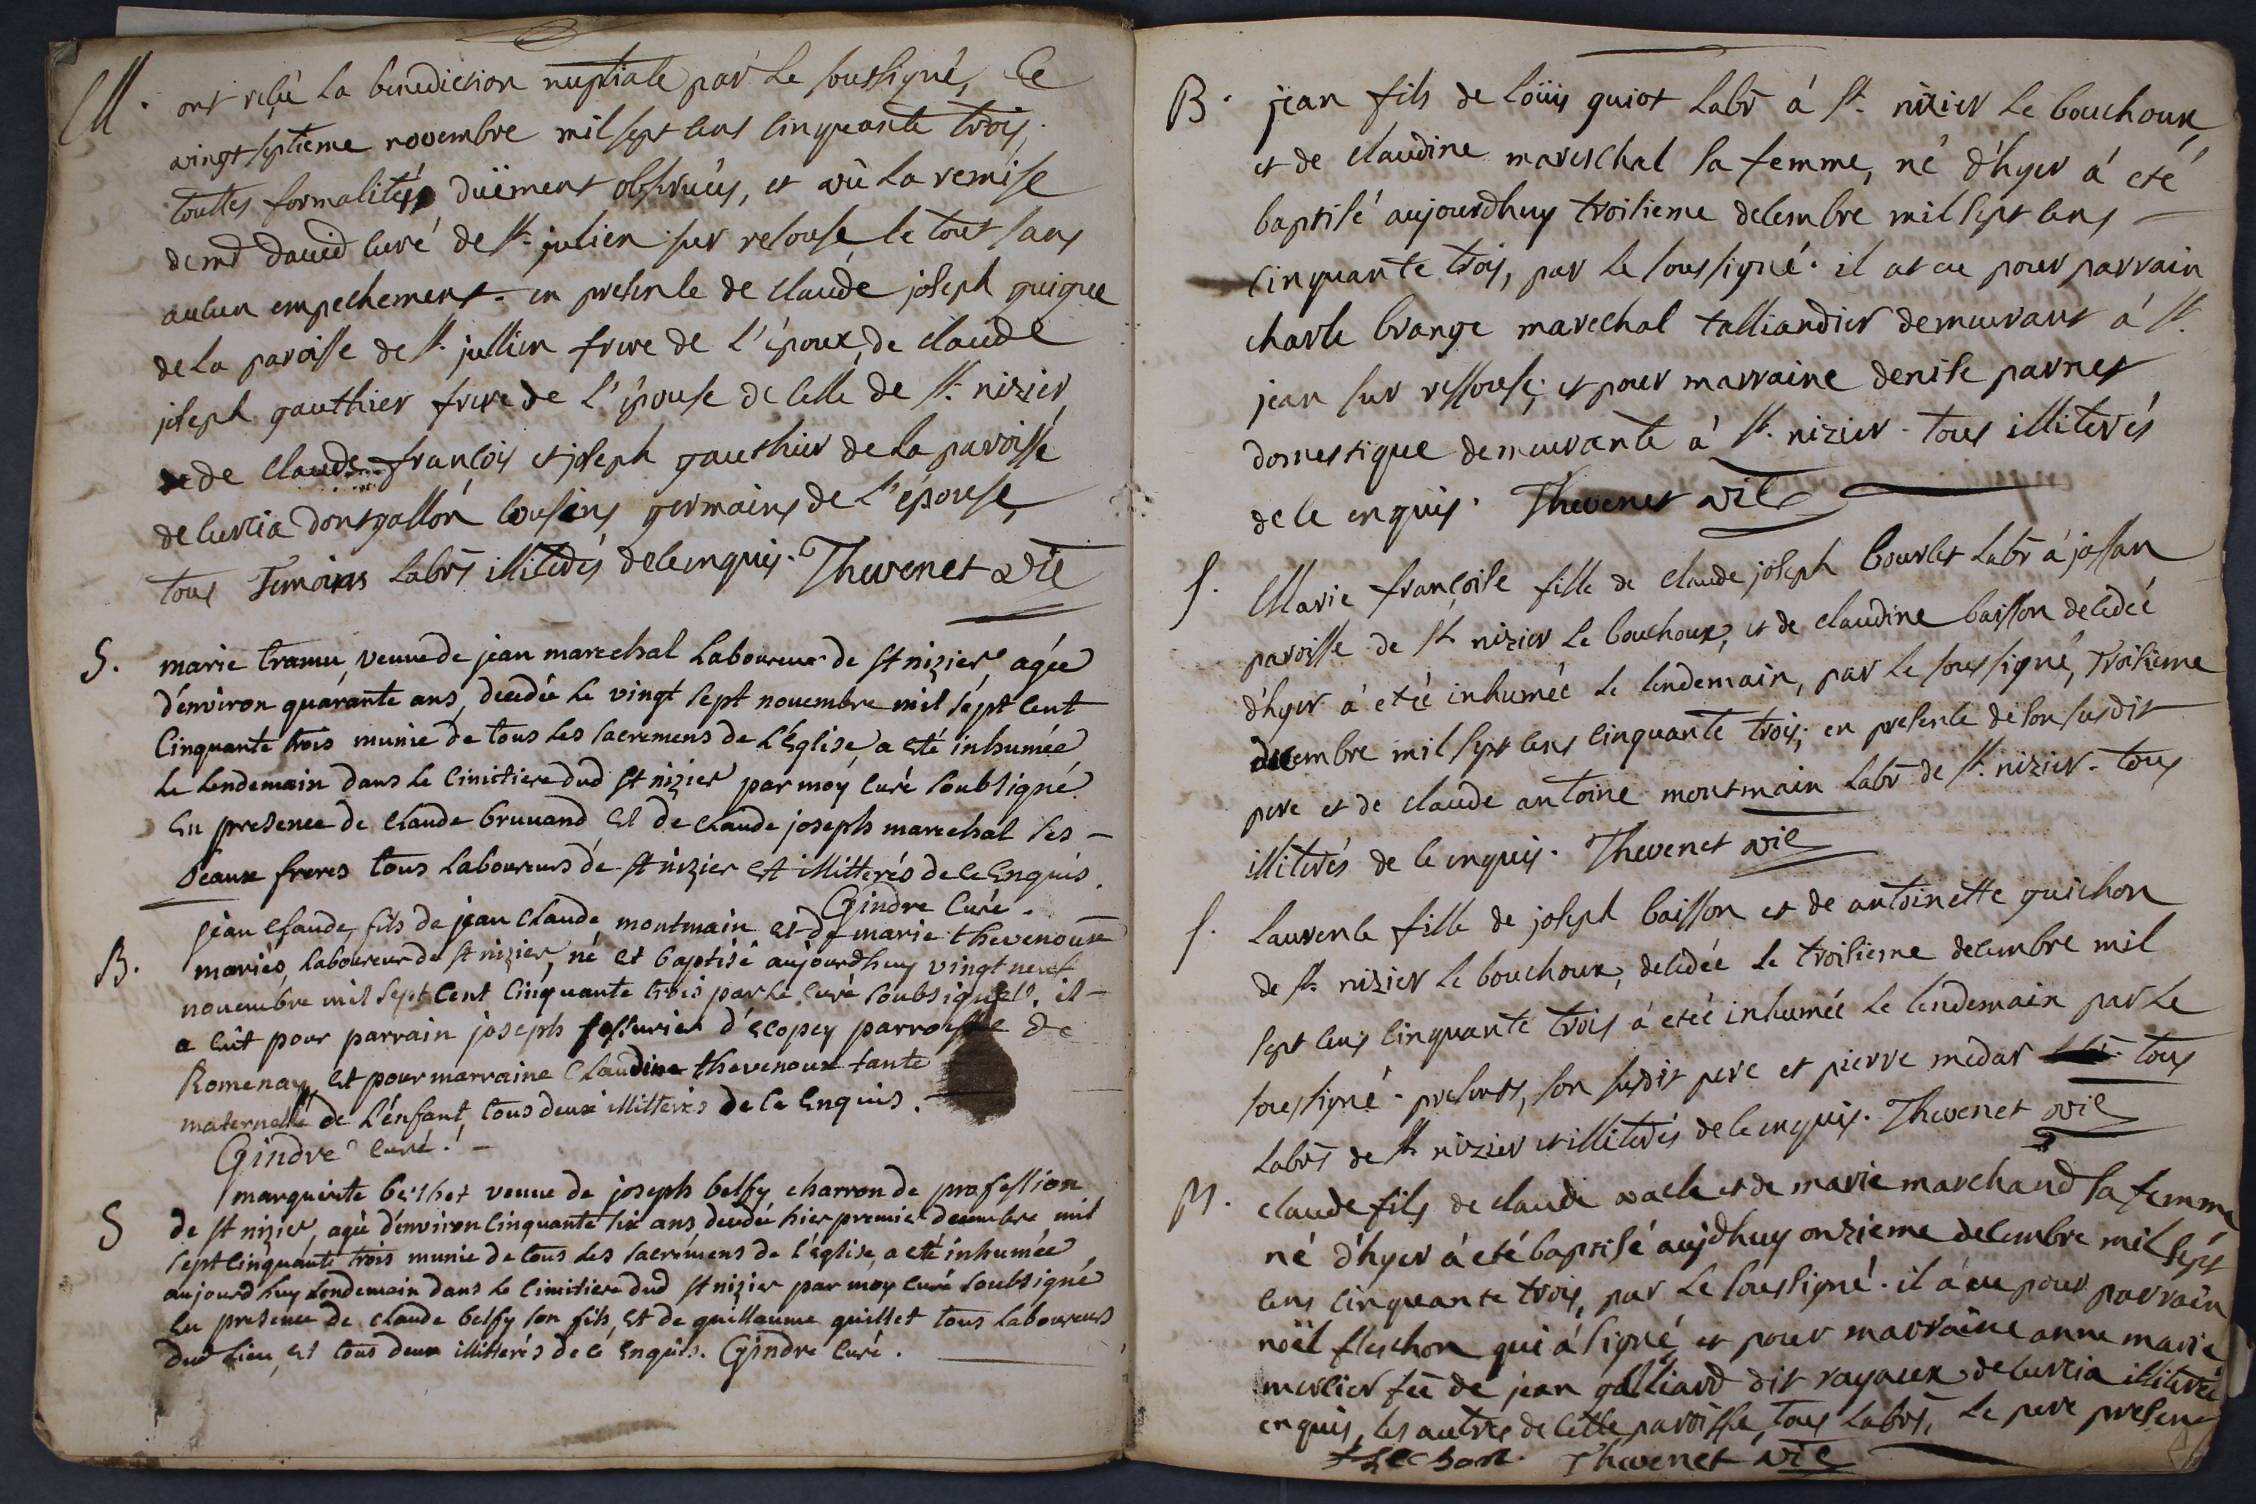 M. ont reçu la benediction nuptiale par le soussigné, ce
vingt septieme novembre mil sept cens cinquante trois,
touttes formalités düement observées, et vû la remise
de mr david curé de st. julien sur relouse le tout sans
aucun empechement. en presence de claude joseph guigue
de la paroisse de st. jullien frere de l'époux, de claude
joseph gauthier frere de l'épouse de celle de st. nizier,
de claude françois et joseph gauthier de la paroisse
de curcia dontgallon cousins germains de l'épouse,
tous temoins labrs illiterés de ce enquis. Thevenet vic
S. marie tramu, veuve de jean marechal laboureur de st nizier, agée
d'environ quarante ans, decedée le vingt sept novembre mil sept cent
cinquante trois munie de tous les sacremens de l'Eglise, a eté inhumée
le lendemain dans le cimitiere dud st nizier par moy curé soubsigné
en presence de claude bruuand et de claude joseph marechal ses –
beaux freres tous laboureurs de st nizier et illitterés de ce enquis.
Gindre curé.
B. jean claude, fils de jean claude montmain et de marie thevenoux
mariés, laboureur de st nizier, né et baptisé aujourdhuy vingt neuf
novembre mil sept cent cinquante trois par le curé soubsigné. il –
a eut pour parrain joseph fessurier d'ecopey parroisse de
Romenay, et pour marraine claudine thevenoux tante
maternelle de l'énfant, tous deux illitterés de ce enquis.
Gindre curé. –
S marguerite berthet veuve de joseph belfy charron de profession
de st nizier, agée d'environ cinquante six ans decedée hier premier decembre mil
sept cinquante trois munie de tous les sacrémens de l'église, a eté inhumée
aujourdhuy lendemain dans le cimitiere dud st nizier par moy curé soubsigné
en presence de claude belfy son fils, et de guillaume guillet tous laboureurs
dud lieu, et tous deux illitterés de ce enquis. Gindre curé.
B. jean fils de loüis guiot labr á st. nizier le bouchoux,
et de claudine mareschal sa femme, né d'hyer á eté
baptisé aujourdhuy troisieme decembre mil sept cens
cinquante trois, par le soussigné. il at eu pour parrain
charle brange marechal talliandier demeurant á st.
jean sur ressouse; et pour marraine denise parnet
domestique demeurante á st. nizier. tous illiterés
de ce enquis. Thevenet vic
S. Marie françoise fille de claude joseph bourlet labr á jassan
paroisse de st. nizier le bouchoux, et de claudine baisson decedée
d'hyer á etée inhumée le lendemain, par le soussigné, troisieme
decembre mil sept cens cinquante trois; en presence de son susdit
pere et de claude antoine montmain labr de st. nizier. tous
illiterés de ce enquis. Thevenet vic
S. laurence fille de joseph baisson et de antoinette guichon
de st. nizier le bouchoux, decedée le troisieme decembre mil
sept cens cinquante trois á eteé inhumée le lendemain par le
soussigné. presents, son susdit pere et pierre medar tous
labrs de st. nizier et illiterés de ce enquis. Thevenet vic
B. claude fils de claude vacle et de marie marchand sa femme
né d'hyer á eté baptisé aujdhuy onzieme decembre mil sept
cens cinquante trois, par le soussigné. il á eu pour parrain
noël flechon qui á signé, et pour marraine anne marie
mercier fe de jean galliard dit rayaux de curcia illiterée
enquis, les autres de cette paroisse, tous labrs, le pere present
flechon. Thevenet vic